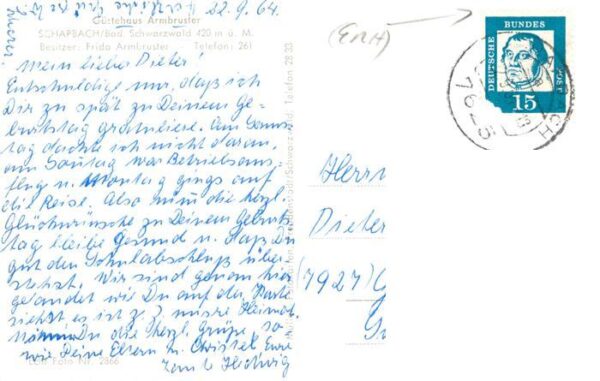 22.9.64.
Gästehaus Armbruster
SCHAPBACH/Bad. Schwarzwald 420 m ü. M.
Besitzer: Frida Armbruster Telefon: 261
Mein lieber Dieter!
Entschuldige nur, daß ich
Dir zu spät zu Deinem Ge-
burtstag gratuliere. Am Sams-
tag dachte ich nicht daran,
am Sonntag war Betriebsaus-
flug u. Montag gings auf
die Reise. Also nimm die herzl.
Glückwünsche zu Deinem Geburts
tag bleibe Gesund u. daß Du
gut den Schulabschluß über
stehst. Wir sind genau hier
gelandet wie Du auf der Karte
siehst es ist z. Z. unsre Heimat.
Nimm Du die herzl. Grüße, so
wie Deine Eltern u. Christel Eure
u. Hedwig
Foto Nr. 2866
Telefon 28 33
(ENH)
DEUTSCHE BUNDESPOST
15
76-5
Herrn
Dieter
(7927) G